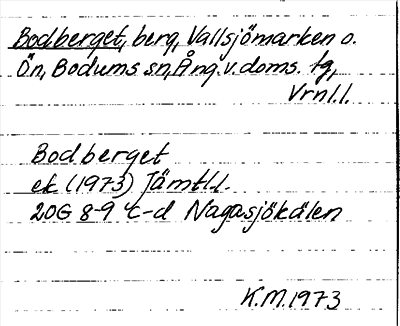 Bodberget, berg, Vallsjömarken o.
Ön, Bodums sn, Ång. v. doms. tg,
Vrnl.l.
Bodberget
ek (1973) Jämtl.l.
20G 8-9 c-d Nagasjökälen
K.M. 1973